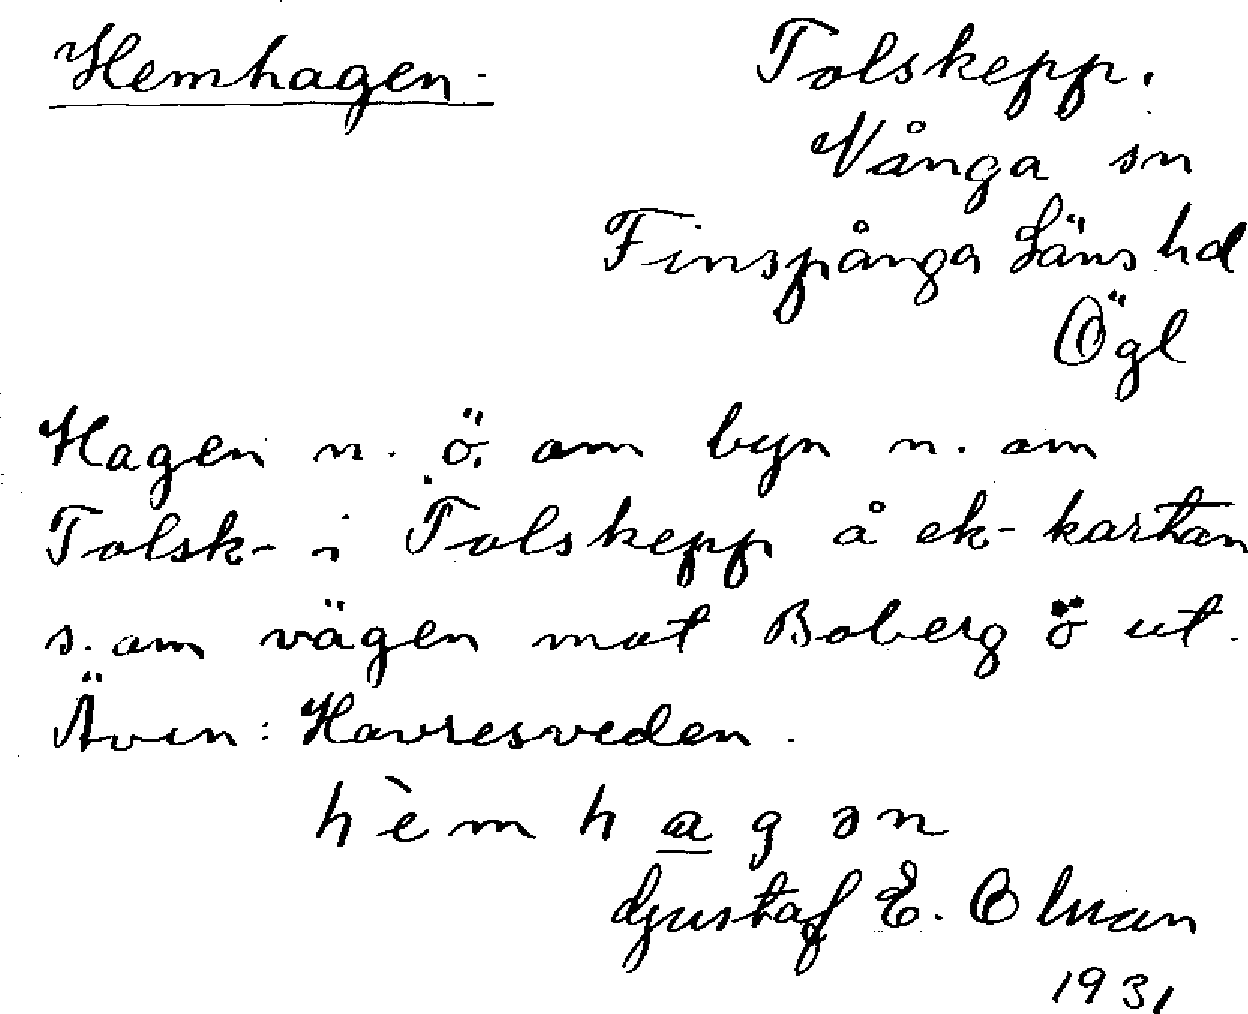 Hemhagen.
Tolskepp.
Vånga sn
Finspånga Läns hd
Ögl
Hagen n. ö. om byn n. om
Tolsk- i Tolskepp å ek-kartan
s. om vägen mot Boberg ö ut.
Även: Havresveden.
hèmhagən
Gustaf E.
1931